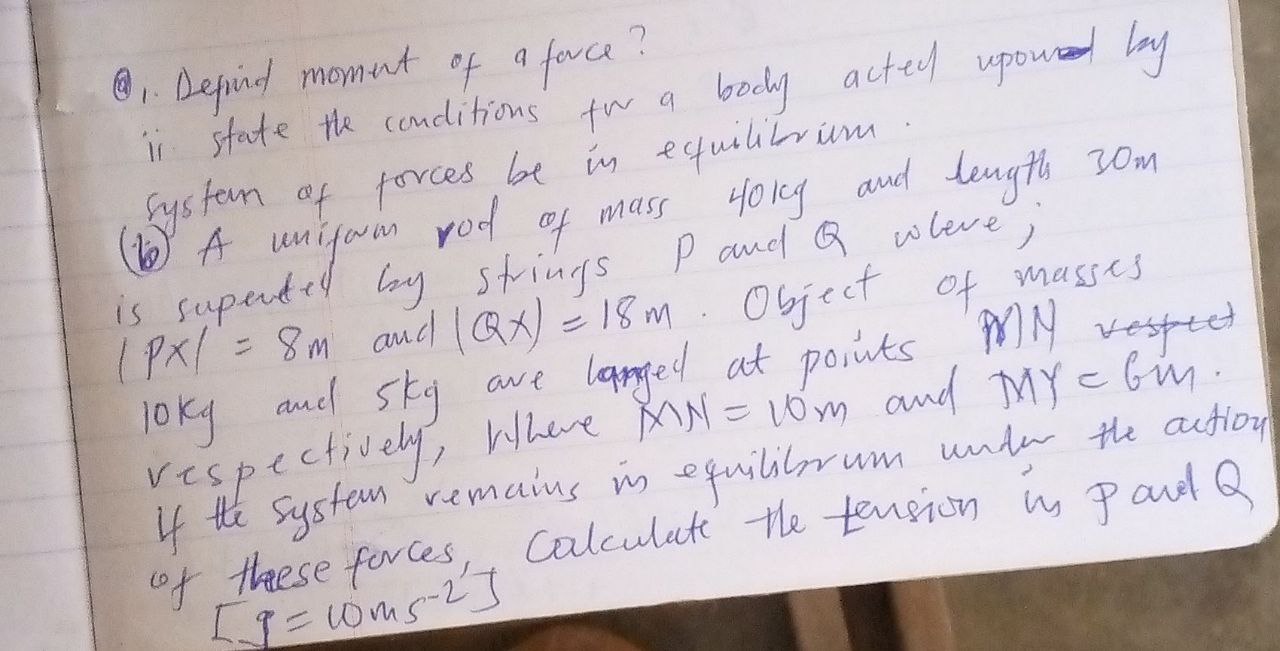 a i. Defind moment of a force?
ii. state the conditions for a body acted upound by
system of forces be in equilibrium.
(b) A uniform rod of mass 40kg and length 30m
is superted by strings P and Q where;
|PX| = 8m and |QX| = 18m. Object of masses
10kg and 5kg are langed at points MN respect
respectively, Where MN = 10m and MY = 6m.
If the system remains in equilibrum under the action
of these forces, Calculate the tension in P and Q
[g = 10ms-2]